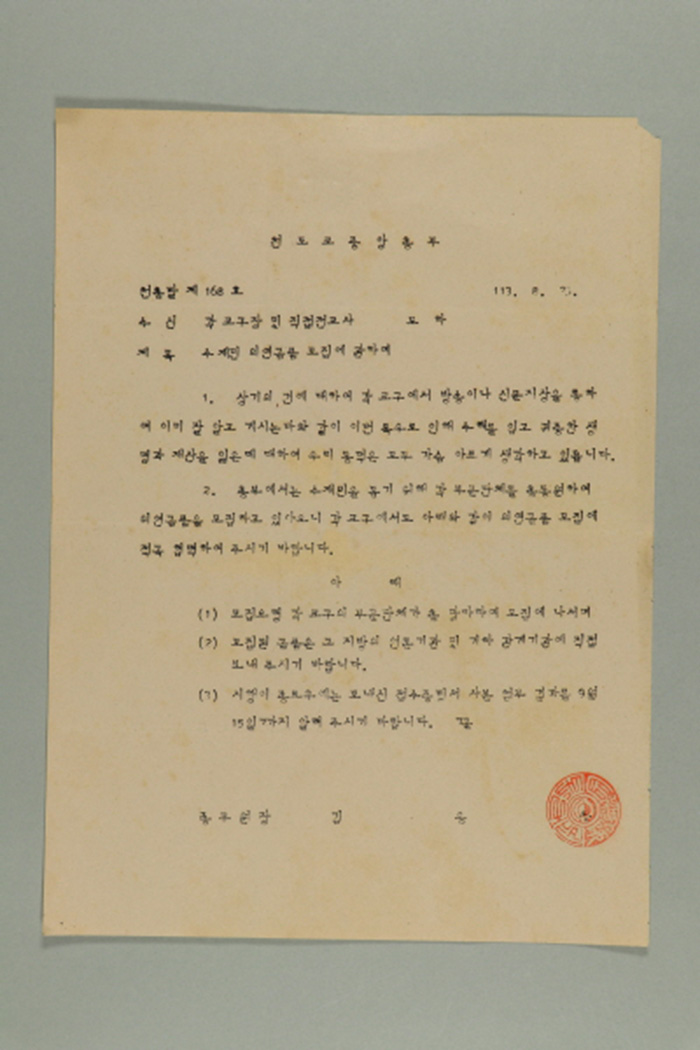 천도교중앙총부
천총발 제 168 호 113. 8.
수 신 각 교구장 및 직접전교사 도 하
제 목 수재민 의연금품 모집에 관하여
1. 상기의 건에 대하여 각 교구에서 방송이나 신문지상을 통하
여 이미 잘 알고 계시는바와 같이 이번 폭우로 인해 수해를 입고 귀중한 생
명과 재산을 잃은데 대하여 우리 동덕은 모두 가슴 아프게 생각하고 있읍니다.
2. 총부에서는 수재민을 돕기 위해 각 부문단체를 총동원하여
의연금품을 모집하고 있아오니 각 교구에서도 아래와 같이 의연금품 모집에
적극 협력하여 주시기 바랍니다.
아 래
(1) 모집요령 각 교구의 부문단체가 총 망라하여 모집에 나서며
(2) 모집된 금품은 그 지방의 언론기관 및 기타 관계기관에 직접
보내 주시기 바랍니다.
(3) 시행이 총부에는 보내신 접수증빙서 사본 일부 결과를 9월
15일까지 알려 주시기 바랍니다. 끝
종무원장 김